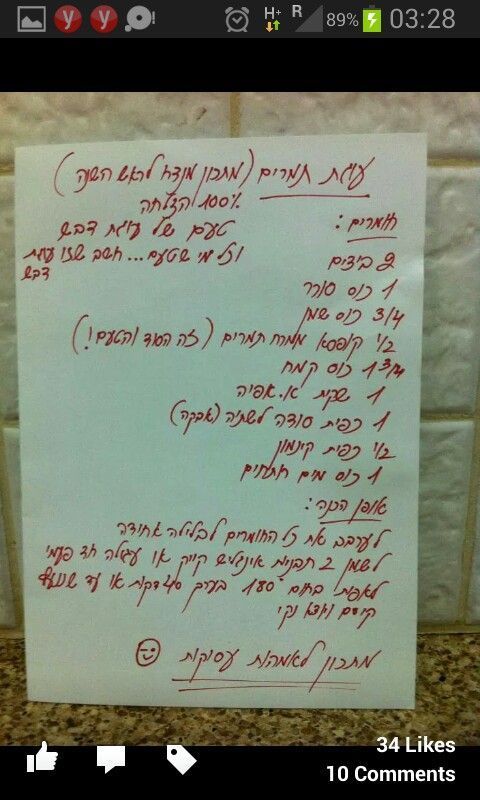 89% 03:28
עוגת תמרים (מתכון מנצח לראש השנה)
100% הצלחה
חומרים:
טעם של עוגת דבש
וכל מי שטעם... חשב שזו עוגת
דבש
2 ביצים
1 כוס סוכר
3/4 כוס שמן
1/2 קופסא ממרח תמרים (זה הסוד והטעם!)
1 3/4 כוס קמח
1 שקית א. אפיה
1 כפית סודה לשתיה (אבקה)
1/2 כפית קינמון
1 כוס מים רותחים
אופן הכנה:
לערבב את כל החומרים לבלילה אחידה
לשמן 2 תבניות אינגליש קייק או עגולה חד פעמי
לאפות בחום 180° בערך 40 דקות או עד שנועץ
קיסם ויוצא נקי
מתכון לאמהות עסוקות
34 Likes
10 Comments